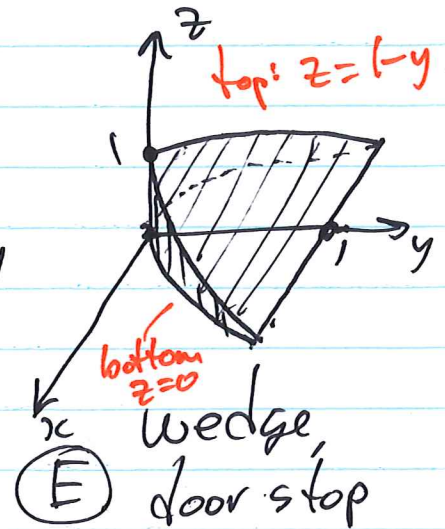 z
top: z=1-y
1
1
y
bottom
z=0
x
wedge,
E
door stop